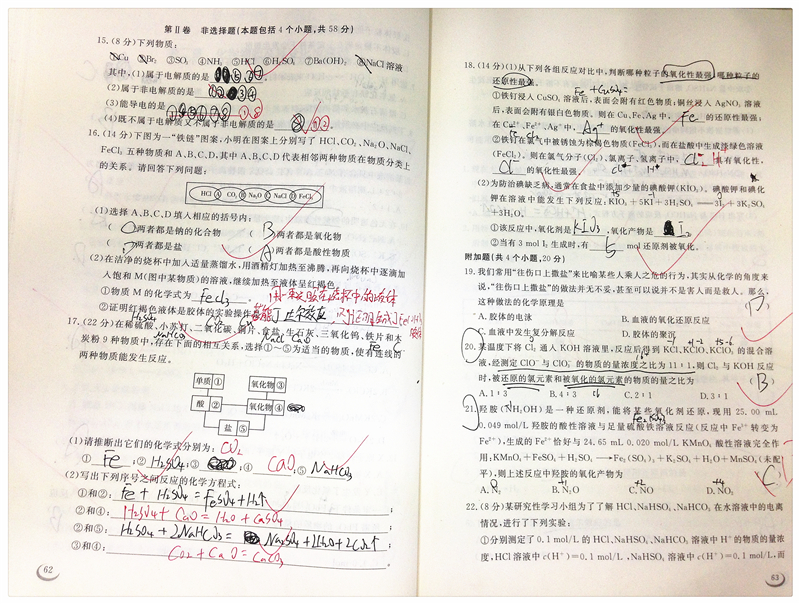 第Ⅱ卷 非选择题(本题包括4个小题,共58分)
15.(8分)下列物质:
①Cu ②Br₂ ③SO₂ ④NH₃ ⑤HCl ⑥H₂SO₄ ⑦Ba(OH)₂ ⑧NaCl溶液
其中,(1)属于电解质的是
(2)属于非电解质的是
(3)能导电的是
(4)既不属于电解质又不属于非电解质的是
16.(14分)下图为一“铁链”图案,小明在图案上分别写了HCl、CO₂、Na₂O、NaCl、
FeCl₃五种物质和A、B、C、D,其中A、B、C、D代表相邻两种物质在物质分类上
的关系。请回答下列问题:
HCl A CO₂ B Na₂O C NaCl D FeCl₃
(1)选择A、B、C、D填入相应的括号内:
( C )两者都是钠的化合物 ( B )两者都是氧化物
( D )两者都是盐 ( A )两者都是酸性物质
(2)在洁净的烧杯中加入适量蒸馏水,用酒精灯加热至沸腾,再向烧杯中逐滴加
入饱和M(图中某物质)的溶液,继续加热至液体呈红褐色。
①物质M的化学式为 FeCl₃ 。
②证明红褐色液体是胶体的实验操作
17.(22分)在稀硫酸、小苏打、二氧化碳、铜片、食盐、生石灰、三氧化钨、铁片和木
炭粉9种物质中,存在下面的相互关系,选择①~⑤为适当的物质,使有连线的
两种物质能发生反应。
单质① 氧化物③
酸② 氧化物④
盐⑤
(1)请推断出它们的化学式分别为: CO₂
① Fe ;② H₂SO₄ ;③ ;④ CaO ;⑤ NaHCO₃
(2)写出下列序号之间反应的化学方程式:
①和②: Fe + H₂SO₄ = FeSO₄ + H₂↑ ;
②和④: H₂SO₄ + CaO = H₂O + CaSO₄ ;
②和⑤: H₂SO₄ + 2NaHCO₃ = Na₂SO₄ + 2H₂O + 2CO₂↑ ;
③和④: CO₂ + CaO = CaCO₃
62
18.(14分)(1)从下列各组反应对比中,判断哪种粒子的氧化性最强,哪种粒子的
还原性最强。
①铁钉浸入CuSO₄溶液后,表面会附有红色物质;铜丝浸入AgNO₃溶液
后,表面会附有银白色物质。则在Cu、Fe、Ag中, Fe 的还原性最强;
在Cu²⁺、Fe²⁺、Ag⁺中, Ag⁺ 的氧化性最强。
②铁钉在氯气中被锈蚀为棕褐色物质(FeCl₃),而在盐酸中生成浅绿色溶液
(FeCl₂)。则在氯气分子(Cl₂)、氯离子、氢离子中, 具有氧化性,
的氧化性最强。
(2)为防治碘缺乏病,通常在食盐中添加少量的碘酸钾(KIO₃)。碘酸钾和碘化
钾在溶液中能发生下列反应:KIO₃+5KI+3H₂SO₄══3I₂+3K₂SO₄
+3H₂O。
①该反应中,氧化剂是 KIO₃ ,氧化产物是 I₂
②当有3 mol I₂生成时,有 5 mol还原剂被氧化。
附加题(共4个小题,20分)
19.我们常用“往伤口上撒盐”来比喻某些人乘人之危的行为,其实从化学的角度来
说,“往伤口上撒盐”的做法并无不妥,甚至可以说并不是害人而是救人。那么,
这种做法的化学原理是 ( D )
A.胶体的电泳 B.血液的氧化还原反应
C.血液中发生复分解反应 D.胶体的聚沉
20.某温度下将Cl₂通入KOH溶液里,反应后得到KCl、KClO、KClO₃的混合溶
液,经测定ClO⁻与ClO₃⁻的物质的量浓度之比为11∶1,则Cl₂与KOH反应
时,被还原的氯元素和被氧化的氯元素的物质的量之比为 ( B )
A.1∶3 B.4∶3 C.2∶1 D.3∶1
21.羟胺(NH₂OH)是一种还原剂,能将某些氧化剂还原,现用25.00 mL
0.049 mol/L羟胺的酸性溶液与足量硫酸铁溶液反应(反应中Fe³⁺转变为
Fe²⁺),生成的Fe²⁺恰好与24.65 mL 0.020 mol/L KMnO₄酸性溶液完全作
用;KMnO₄+FeSO₄+H₂SO₄→Fe₂(SO₄)₃+K₂SO₄+H₂O+MnSO₄(未配
平),则上述反应中羟胺的氧化产物为
A.N₂ B.N₂O C.NO D.NO₂
22.(8分)某研究性学习小组为了了解HCl、NaHSO₄、NaHCO₃在水溶液中的电离
情况,进行了下列实验:
①分别测定了0.1 mol/L的HCl、NaHSO₄、NaHCO₃溶液中H⁺的物质的量浓
度,HCl溶液中c(H⁺)=0.1 mol/L,NaHSO₄溶液中c(H⁺)=0.1 mol/L,而
63